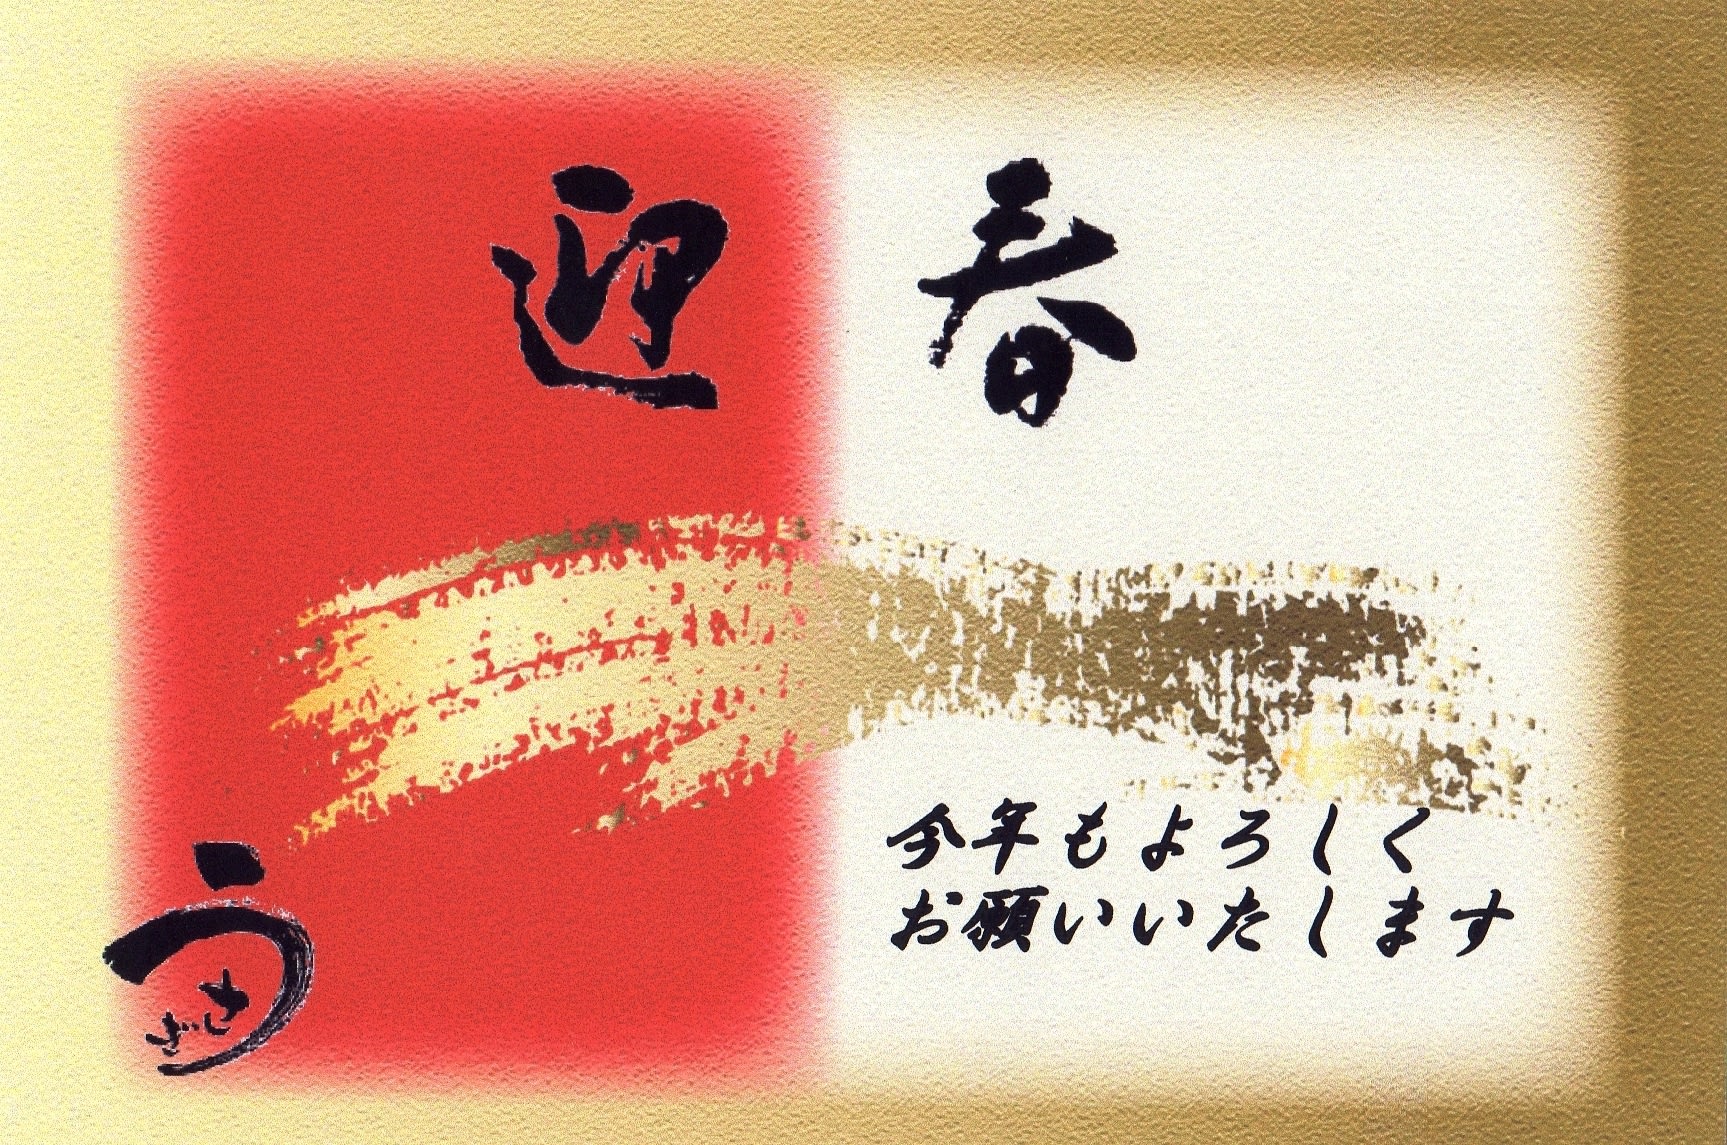 迎春
今年もよろしく
お願いいたします
う